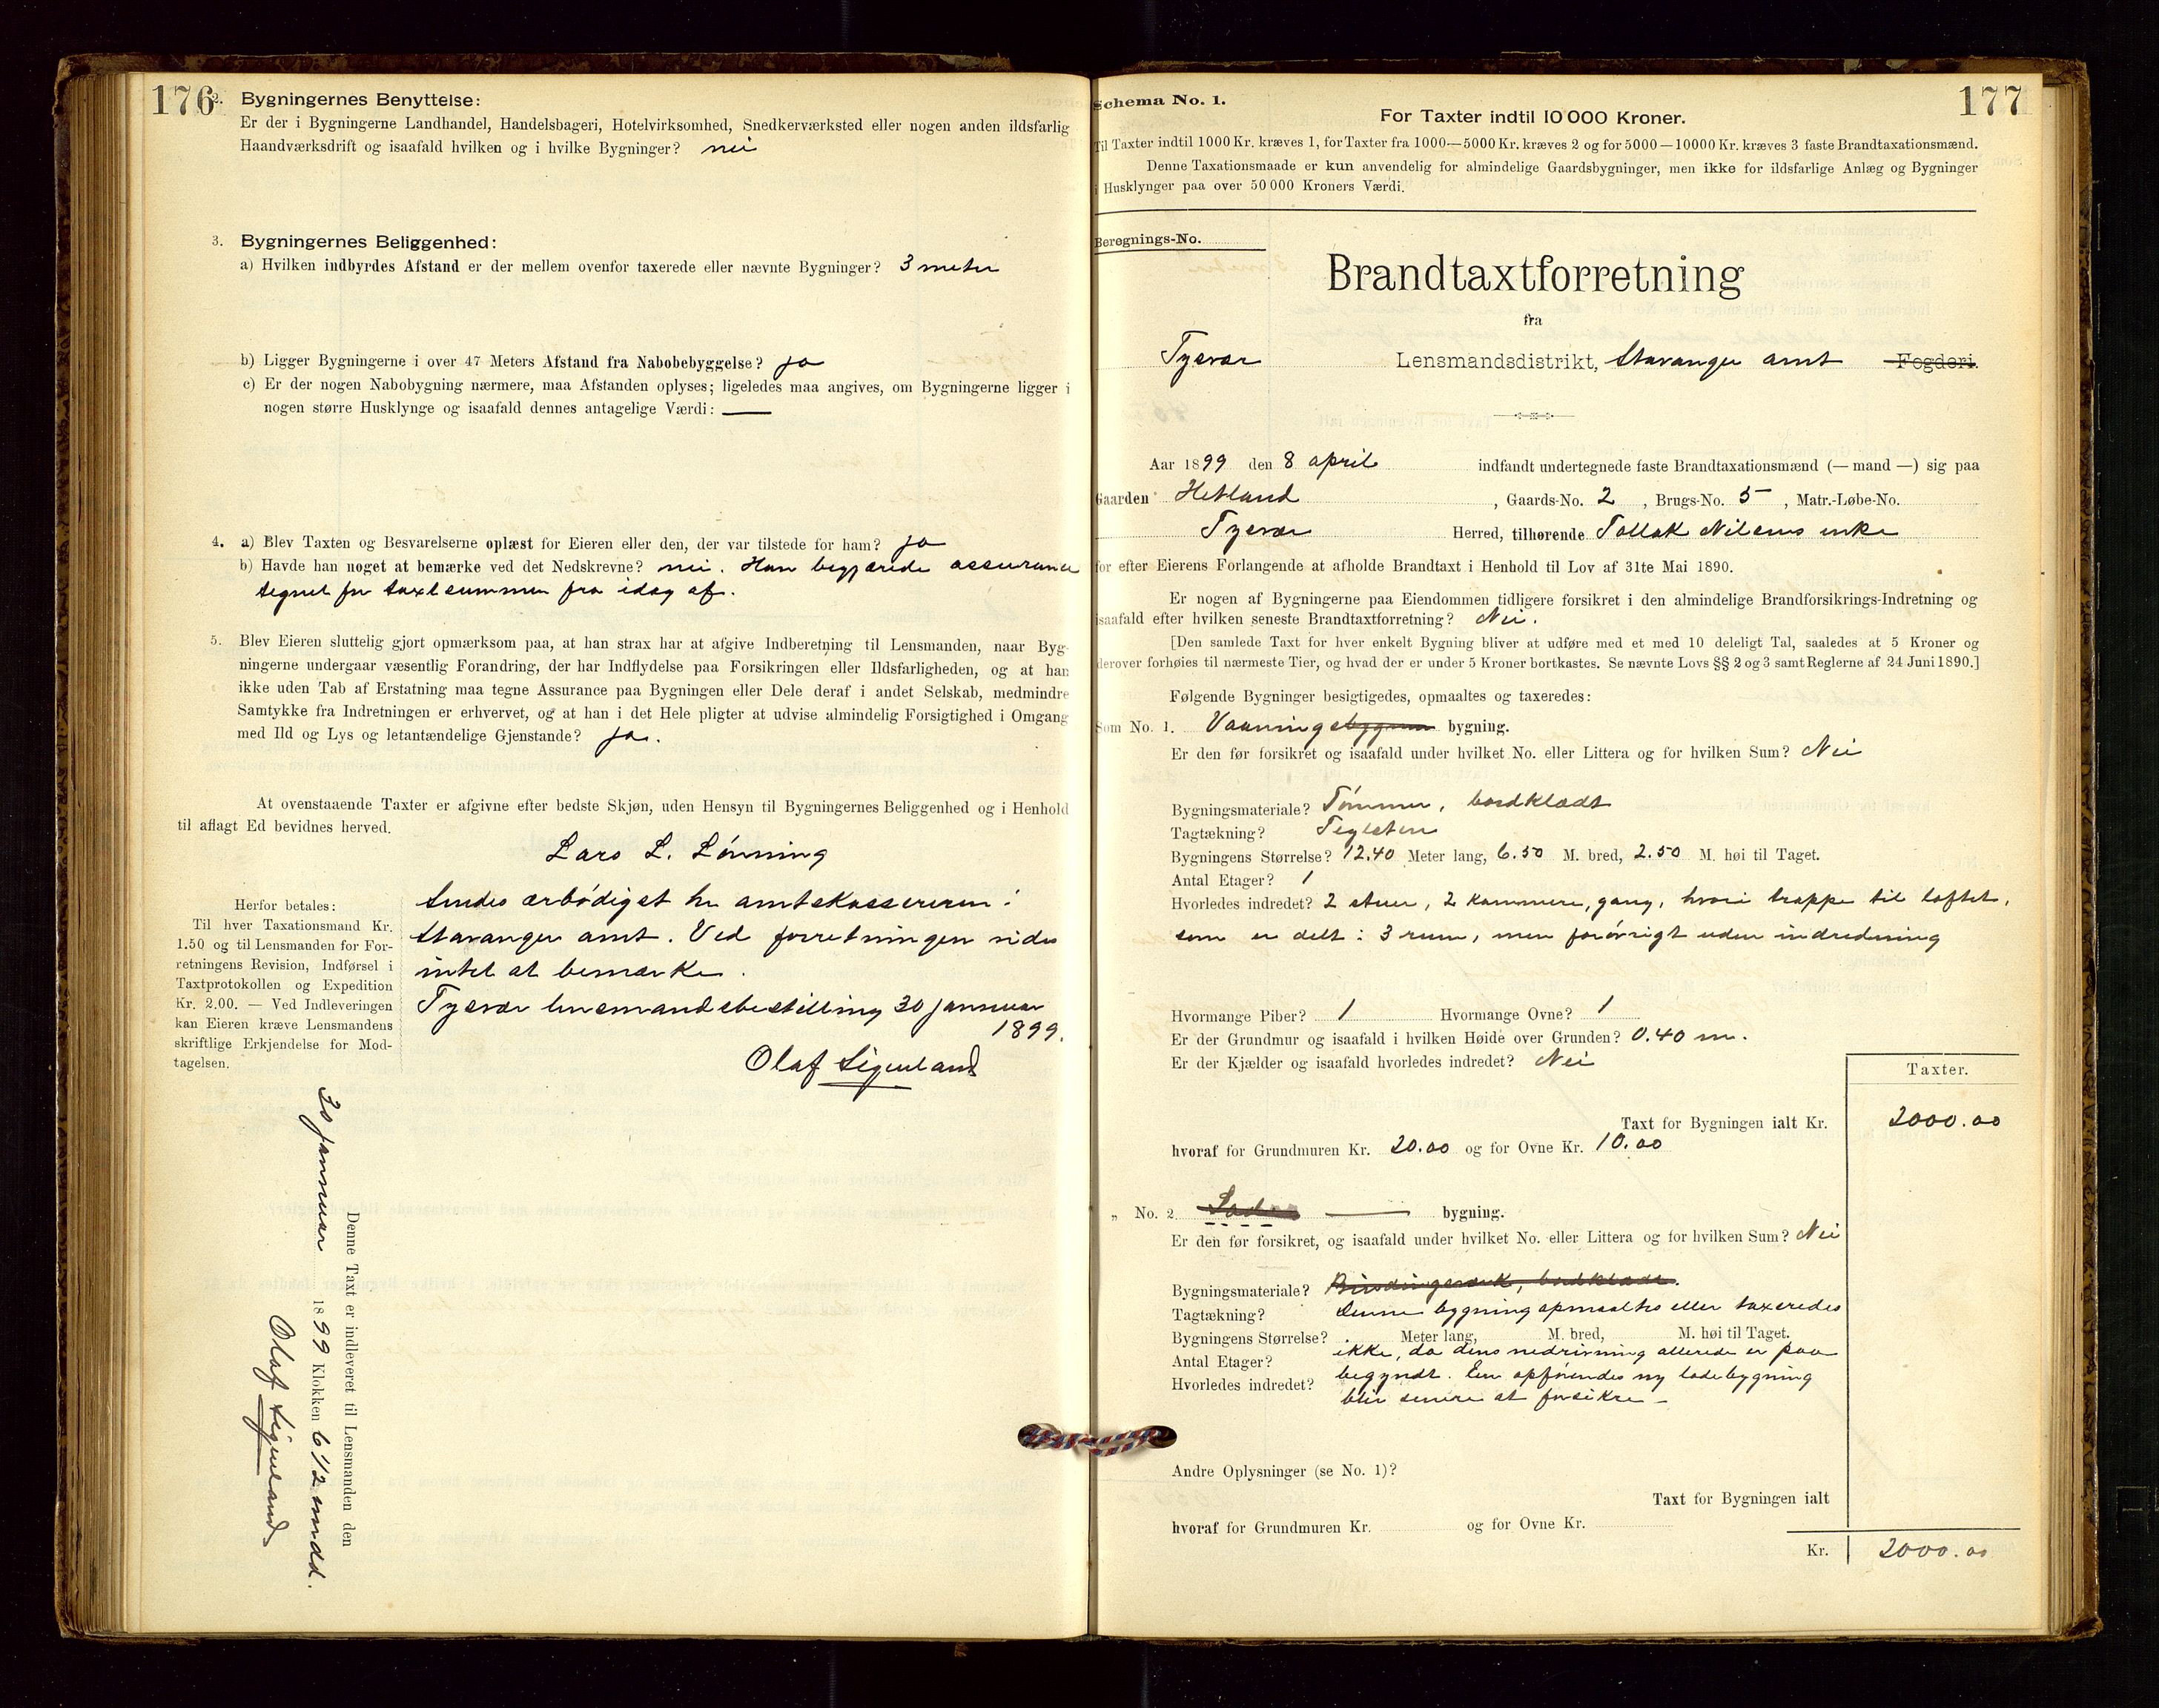 176
2. Bygningernes Benyttelse:
Er der i Bygningerne Landhandel, Handelsbageri, Hotelvirksomhed, Snedkerværksted eller nogen anden ildsfarlig
Haandværksdrift og isaafald hvilken og i hvilke Bygninger? nei
3. Bygningernes Beliggenhed:
a) Hvilken indbyrdes Afstand er der mellem ovenfor taxerede eller nævnte Bygninger? 3 meter
b) Ligger Bygningerne i over 47 Meters Afstand fra Nabobebyggelse? ja
c) Er der nogen Nabobygning nærmere, maa Afstanden oplyses; ligeledes maa angives, om Bygningerne ligger i
nogen større Husklynge og isaafald dennes antagelige Værdi: —
4. a) Blev Taxten og Besvarelserne oplæst for Eieren eller den, der var tilstede for ham? ja
b) Havde han noget at bemærke ved det Nedskrevne? nei. Han begjærede assurance
tegnet for taxtsummen fra idag af.
5. Blev Eieren sluttelig gjort opmærksom paa, at han strax har at afgive Indberetning til Lensmanden, naar Byg-
ningerne undergaar væsentlig Forandring, der har Indflydelse paa Forsikringen eller Ildsfarligheden, og at han
ikke uden Tab af Erstatning maa tegne Assurance paa Bygningen eller Dele deraf i andet Selskab, medmindre
Samtykke fra Indretningen er erhvervet, og at han i det Hele pligter at udvise almindelig Forsigtighed i Omgang
med Ild og Lys og letantændelige Gjenstande? ja.
At ovenstaaende Taxter er afgivne efter bedste Skjøn, uden Hensyn til Bygningernes Beliggenhed og i Henhold
til aflagt Ed bevidnes herved.
Lars L. Lønning
Herfor betales:
Til hver Taxationsmand Kr.
1.50 og til Lensmanden for For-
retningens Revision, Indførsel i
Taxtprotokollen og Expedition
Kr. 2.00. — Ved Indleveringen
kan Eieren kræve Lensmandens
skriftlige Erkjendelse for Mod-
tagelsen.
Sendes ærbødigst hr amtskassereren i
Stavanger amt. Ved forretningen vides
intet at bemærke.
Tysvær lensmandsbestilling 30 januar
1899.
Olaf
Denne Taxt er indleveret til Lensmanden den
30 januar 1899 Klokken 6 1/2 emdd.
Olaf
177
Schema No. 1.
For Taxter indtil 10 000 Kroner.
Til Taxter indtil 1000 Kr. kræves 1, for Taxter fra 1000—5000 Kr. kræves 2 og for 5000—10000 Kr. kræves 3 faste Brandtaxationsmænd.
Denne Taxationsmaade er kun anvendelig for almindelige Gaardsbygninger, men ikke for ildsfarlige Anlæg og Bygninger
i Husklynger paa over 50 000 Kroners Værdi.
Beregnings-No.
Brandtaxtforretning
fra
Tysvær Lensmandsdistrikt, Stavanger amt Fogderi.
Aar 1899 den 8 april indfandt undertegnede faste Brandtaxationsmænd (— mand —) sig paa
Gaarden Hetland, Gaards-No. 2, Brugs-No. 5, Matr.-Løbe-No.
Tysvær Herred, tilhørende Tollak Nilsens enke
for efter Eierens Forlangende at afholde Brandtaxt i Henhold til Lov af 31te Mai 1890.
Er nogen af Bygningerne paa Eiendommen tidligere forsikret i den almindelige Brandforsikrings-Indretning og
isaafald efter hvilken seneste Brandtaxtforretning? Nei.
[Den samlede Taxt for hver enkelt Bygning bliver at udføre med et med 10 deleligt Tal, saaledes at 5 Kroner og
derover forhøies til nærmeste Tier, og hvad der er under 5 Kroner bortkastes. Se nævnte Lovs §§ 2 og 3 samt Reglerne af 24 Juni 1890.]
Følgende Bygninger besigtigedes, opmaaltes og taxeredes:
Som No. 1. Vaanings bygning.
Er den før forsikret og isaafald under hvilket No. eller Littera og for hvilken Sum? Nei
Bygningsmateriale? Tømmer, bordklædt
Tagtækning? Teglsten
Bygningens Størrelse? 12.40 Meter lang, 6.50 M. bred, 2.50 M. høi til Taget.
Antal Etager? 1
Hvorledes indredet? 2 stuer, 2 kammere, gang, hvori trappe til loftet,
som er delt i 3 rum, men forøvrigt uden indredning
Hvormange Piber? 1 Hvormange Ovne? 1
Er der Grundmur og isaafald i hvilken Høide over Grunden? 0.40 m.
Er der Kjælder og isaafald hvorledes indredet? Nei
Taxter.
Taxt for Bygningen ialt Kr. 2000.00
hvoraf for Grundmuren Kr. 20.00 og for Ovne Kr. 10.00
„ No. 2. Lade — bygning.
Er den før forsikret, og isaafald under hvilket No. eller Littera og for hvilken Sum? Nei
Bygningsmateriale? Bindingsverk, bordklædt.
Tagtækning? Denne bygning opmaaltes eller taxeredes
Bygningens Størrelse? Meter lang, M. bred, M. høi til Taget.
ikke, da dens nedrivning allerede er paa
Antal Etager?
Hvorledes indredet? begyndt. En opførendes ny ladebygning
blir senere at forsikre –
Andre Oplysninger (se No. 1)?
Taxt for Bygningen ialt
hvoraf for Grundmuren Kr. og for Ovne Kr.
Kr. 2000.00